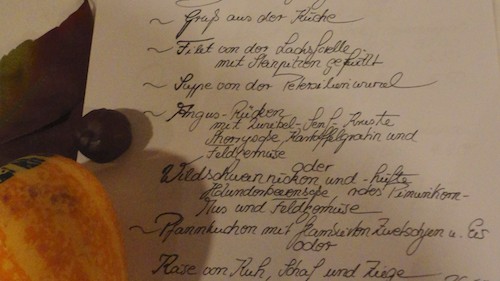 ~ Gruß aus der Küche
~ Filet von der Lachsforelle
mit Steinpilzen gefüllt
~ Suppe von der Petersilienwurzel
~ Angus-Rücken
mit Zwiebel-Senf-Kruste
Kartoffelgratin und
Feldgemüse
oder
Wildschweinrücken und -hüfte
Holunderbeerensoße,
Mus und Feldgemüse
~ Pfannkuchen mit Zwetschgen u. Eis
oder
Käse von Kuh, Schaf und Ziege